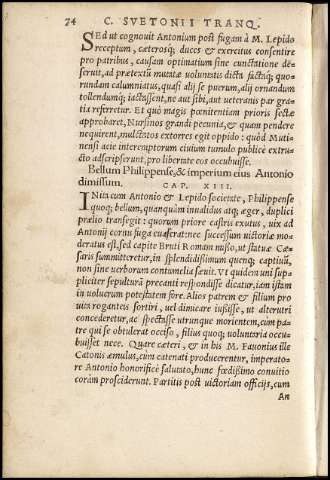 74 C. SVETONII TRANQ.
SEd ut cognouit Antonium post fugam à M. Lepido
receptum, cæterosq; duces & exercitus consentire
pro patribus, causam optimatium sine cunctatione de-
seruit, ad prætextũ mutatæ uoluntatis dicta factaq; quo-
rundam calumniatus, quasi alij se puerum, alij ornandum
tollendumq; iactassent, ne aut sibi, aut ueteranis par gra-
tia referretur. Et quò magis pœnitentiam prioris sectæ
approbaret, Nursinos grandi pecunia, & quam pendere
nequirent, mulctatos extorres egit oppido: quòd Mutin-
nensi acie interemptorum ciuium tumulo publicè extru-
cto adscripserunt, pro libertate eos occubuisse.
Bellum Philippense, & imperium eius Antonio
dimissum.
CAP. XIII.
INita cum Antonio & Lepido societate, Philippense
quoq; bellum, quanquàm inualidus atq; æger, duplici
prælio transegit: quorum priore castris exutus, uix ad
Antonij cornu fuga euaserat: nec successum uictoriæ mo-
deratus est, sed capite Bruti Romam misso, ut statuæ Cæ-
saris summitteretur, in splendidissimum quenq; captiuũ,
non sine uerborum contumelia sæuit. Vt quidem uni sup-
pliciter sepulturã precanti respondisse dicatur, iam istam
in uolucrum potestatem fore. Alios patrem & filium pro
uita rogantes sortiri, uel dimicare iussisse, ut alterutri
concederetur, ac spectasse utrunque morientem, cùm pa-
tre qui se obtulerat occiso, filius quoq; uoluntaria occu-
buisset nece. Quare cæteri, & in his M. Fauonius ille
Catonis æmulus, cum catenati producerentur, imperato-
re Antonio honorificè salutato, hunc fœdißimo conuitio
coràm prosciderunt. Partitis post uictoriam officijs, cum
An